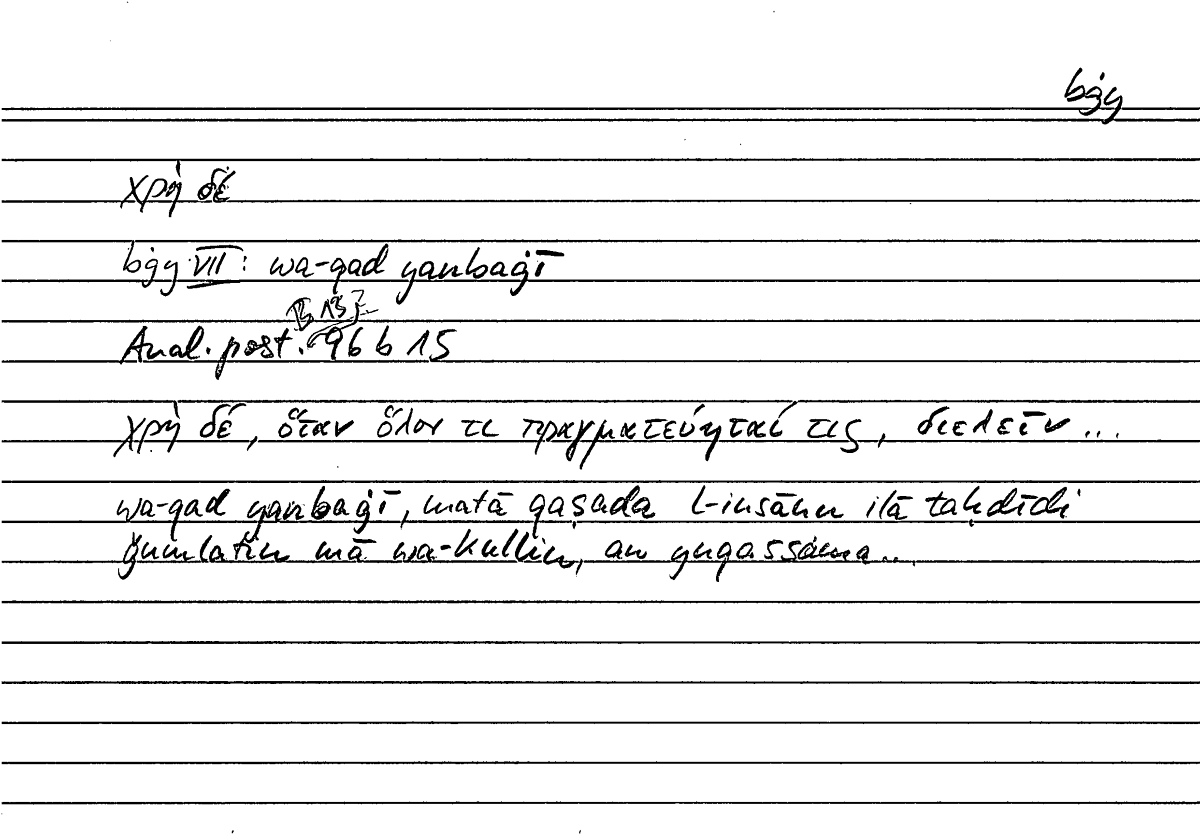 bġy
χρὴ δέ
bġy VII: wa-qad yanbaġī
B 13,
Anal. post. 96 b 15
χρὴ δέ, ὅταν ὅλον τι πραγματεύηταί τις, διελεῖν...
wa-qad yanbaġī, matā qaṣada l-insānu ilā taḥdīdi
ǧumlatin mā wa-kullin, an yuqassama...